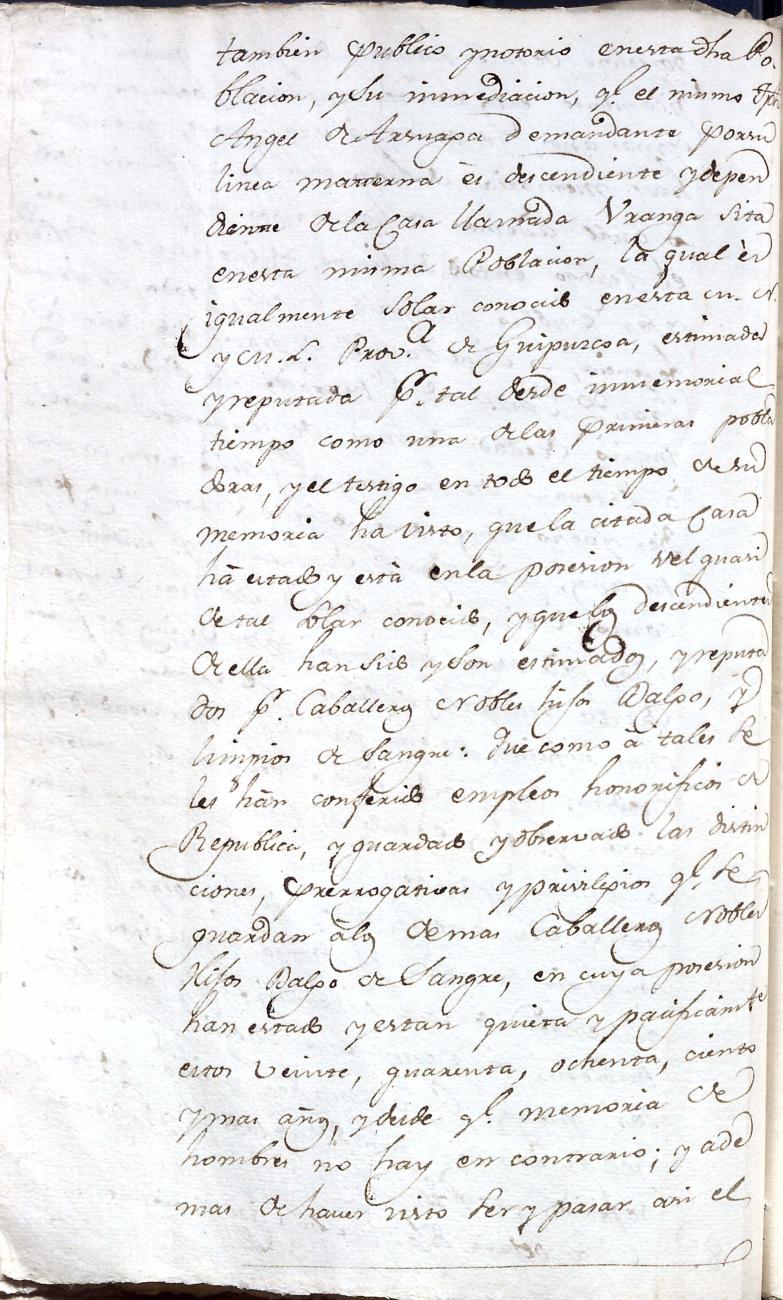 tambien publico ynotorio enesta dha Po-
blacion, ysu inmediacion, q.l el mismo
Angel de Arsuaga demandante porsu
linea materna ès descendiente ydepen
diente dela Casa llamada Vranga sita
enesta misma Poblacion, la qual ès
igualmente Solar conocido enesta M. N.
y M. L. Prov.a de Guipuzcoa, estimada
yreputada p.r tal desde inmemorial
tiempo como una delas primeras pobla
doras, y el testigo en todo el tiempo de su
memoria ha visto, quela citada Casa
hà estado y està enla posesion vel quasi
de tal solar conocido, yquelos descendientes
de ella han sido yson estimados, yreputa
dos p.r Caballeros Nobles hijos Dalgo, y
limpios de sangre: Que como à tales se
les hàn conferido empleos honorificos de
Republica, yguardado yobservado las distin
ciones, prerrogativas yprivilegios q.e se
guardan àlos demas Caballeros Nobles
Hijos Dalgo de Sangre, en cuya posesion
han estado yestan quieta y pacificam.te
estos veinte, quarenta, ochenta, ciento
ymas años, ydesde q.e memoria de
hombres no hay en contrario; y ade
mas de haver visto ser y pasar asi el